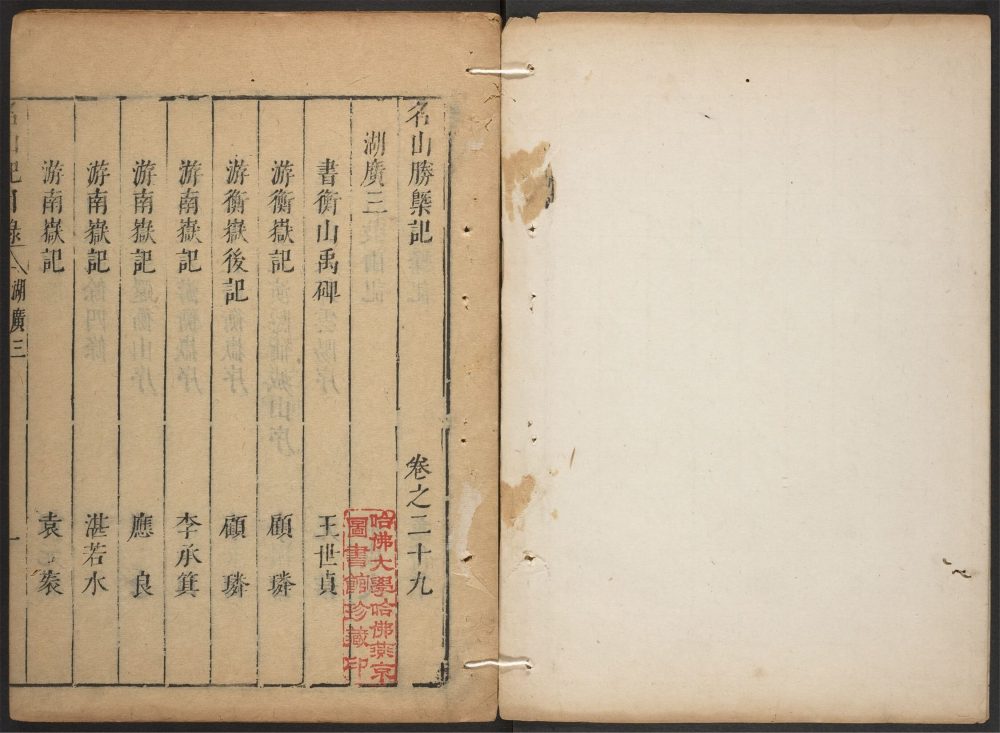 名山勝槩記 卷之二十九
湖廣三
書衡山禹碑 王世貞
游衡嶽記 顧璘
游衡嶽後記 顧璘
游南嶽記 李承箕
游南嶽記 應良
游南嶽記 湛若水
游南嶽記 袁
名山記目錄 湖廣三 一
哈佛大學哈佛燕京
圖書館珍藏印